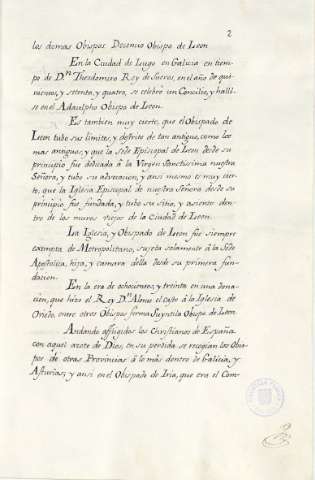 2
los demas Obispos Decencio Obispo de Leon
En la Ciudad de Lugo en Galicia en tiem
po de D.n Theodomiro Rey de Suevos, en el año de qui
nientos, y setenta, y quatro, se celebró un Concilio, y halló
se en el Adaulpho Obispo de Leon.
Es tambien muy cierto, que el Obispado de
Leon tubo sus limites, y distrito de tan antiguo, como los
mas antiguos, y que la Sede Episcopal de Leon desde su
principio fue dedicada à la Virgen Sanctissima nuestra
Señora, y tubo su advocacion, y ansi mesmo es muy cier
to, que la Iglesia Episcopal de nuestra Señora desde su
principio fue fundada, y tubo su sitio, y asiento den
tro de los muros viejos de la Ciudad de Leon.
La Iglesia, y Obispado de Leon fue siempre
exempta de Metropolitano, sujeta solamente à la Sede
Apostolica, hija, y camara della desde su primera fun
dacion.
En la era de ochocientos, y treinta en una dona
cion, que hizo el Rey D.n Alonso el casto à la Iglesia de
Oviedo, entre otros Obispos firma Suyntila Obispo de Leon.
Andando affligidos los Christianos de España
con aquel azote de Dios, en su perdida se recogian los Obis
pos de otras Provincias à lo más dentro de Galicia, y
Asturias; y ansi en el Obispado de Iria, que era el Com-